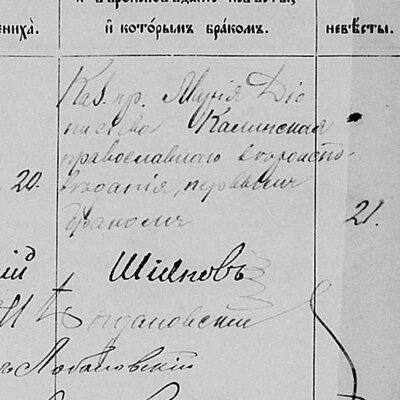 ниха.
и котoрымъ бракомъ.
невѣсты.
Каз. пр. Марiя Дiо
нисiева Калинская
православнаго вѣроиспо-
вѣданiя, первымъ
20.
бракомъ
21.
Шiяновъ
Богдановскiй
Лобановскiй